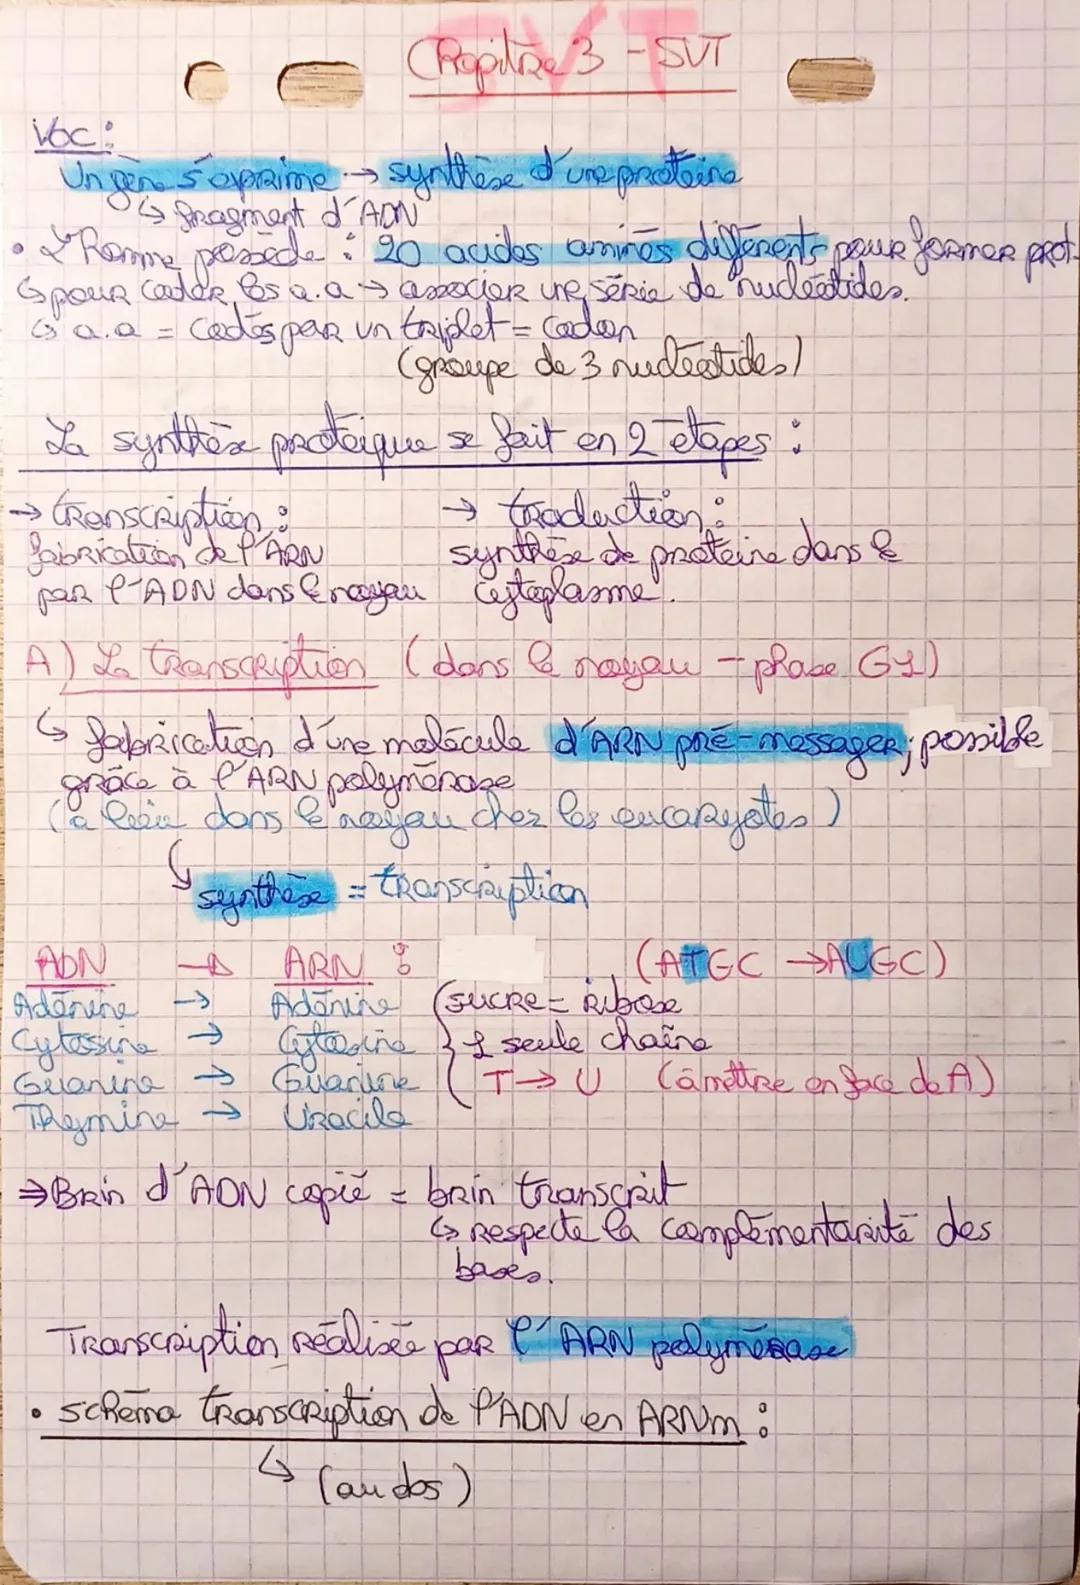 SVT
Chapitre 3 - SVT
Voc :
Un gène s'exprime → synthèse d'une protéine
↳ fragment d'ADN
• L'Homme possède : 20 acides aminés différents pour former prot.
↳ pour coder les a.a → associer une série de nucléotides.
↳ a.a = codés par un triplet = codon
(groupe de 3 nucléotides)
La synthèse protéique se fait en 2 étapes :
→ transcription : → traduction :
fabrication de l'ARN synthèse de protéine dans le
par l'ADN dans le noyau cytoplasme.
A) La transcription (dans le noyau - phase G1)
↳ fabrication d'une molécule d'ARN pré-messager; possible
grâce à l'ARN polymérase
(a lieu dans le noyau chez les eucaryotes)
↳ synthèse = transcription
ADN → ARN : (ATGC → AUGC)
Adénine → Adénine (sucre = ribose
Cytosine → Cytosine { 1 seule chaîne
Guanine → Guanine ( T → U (à mettre en face de A)
Thymine → Uracile
⇒ Brin d'ADN copié = brin transcrit
↳ respecte la complémentarité des
bases.
Transcription réalisée par l'ARN polymérase
• schéma transcription de l'ADN en ARNm :
↳ (au dos)